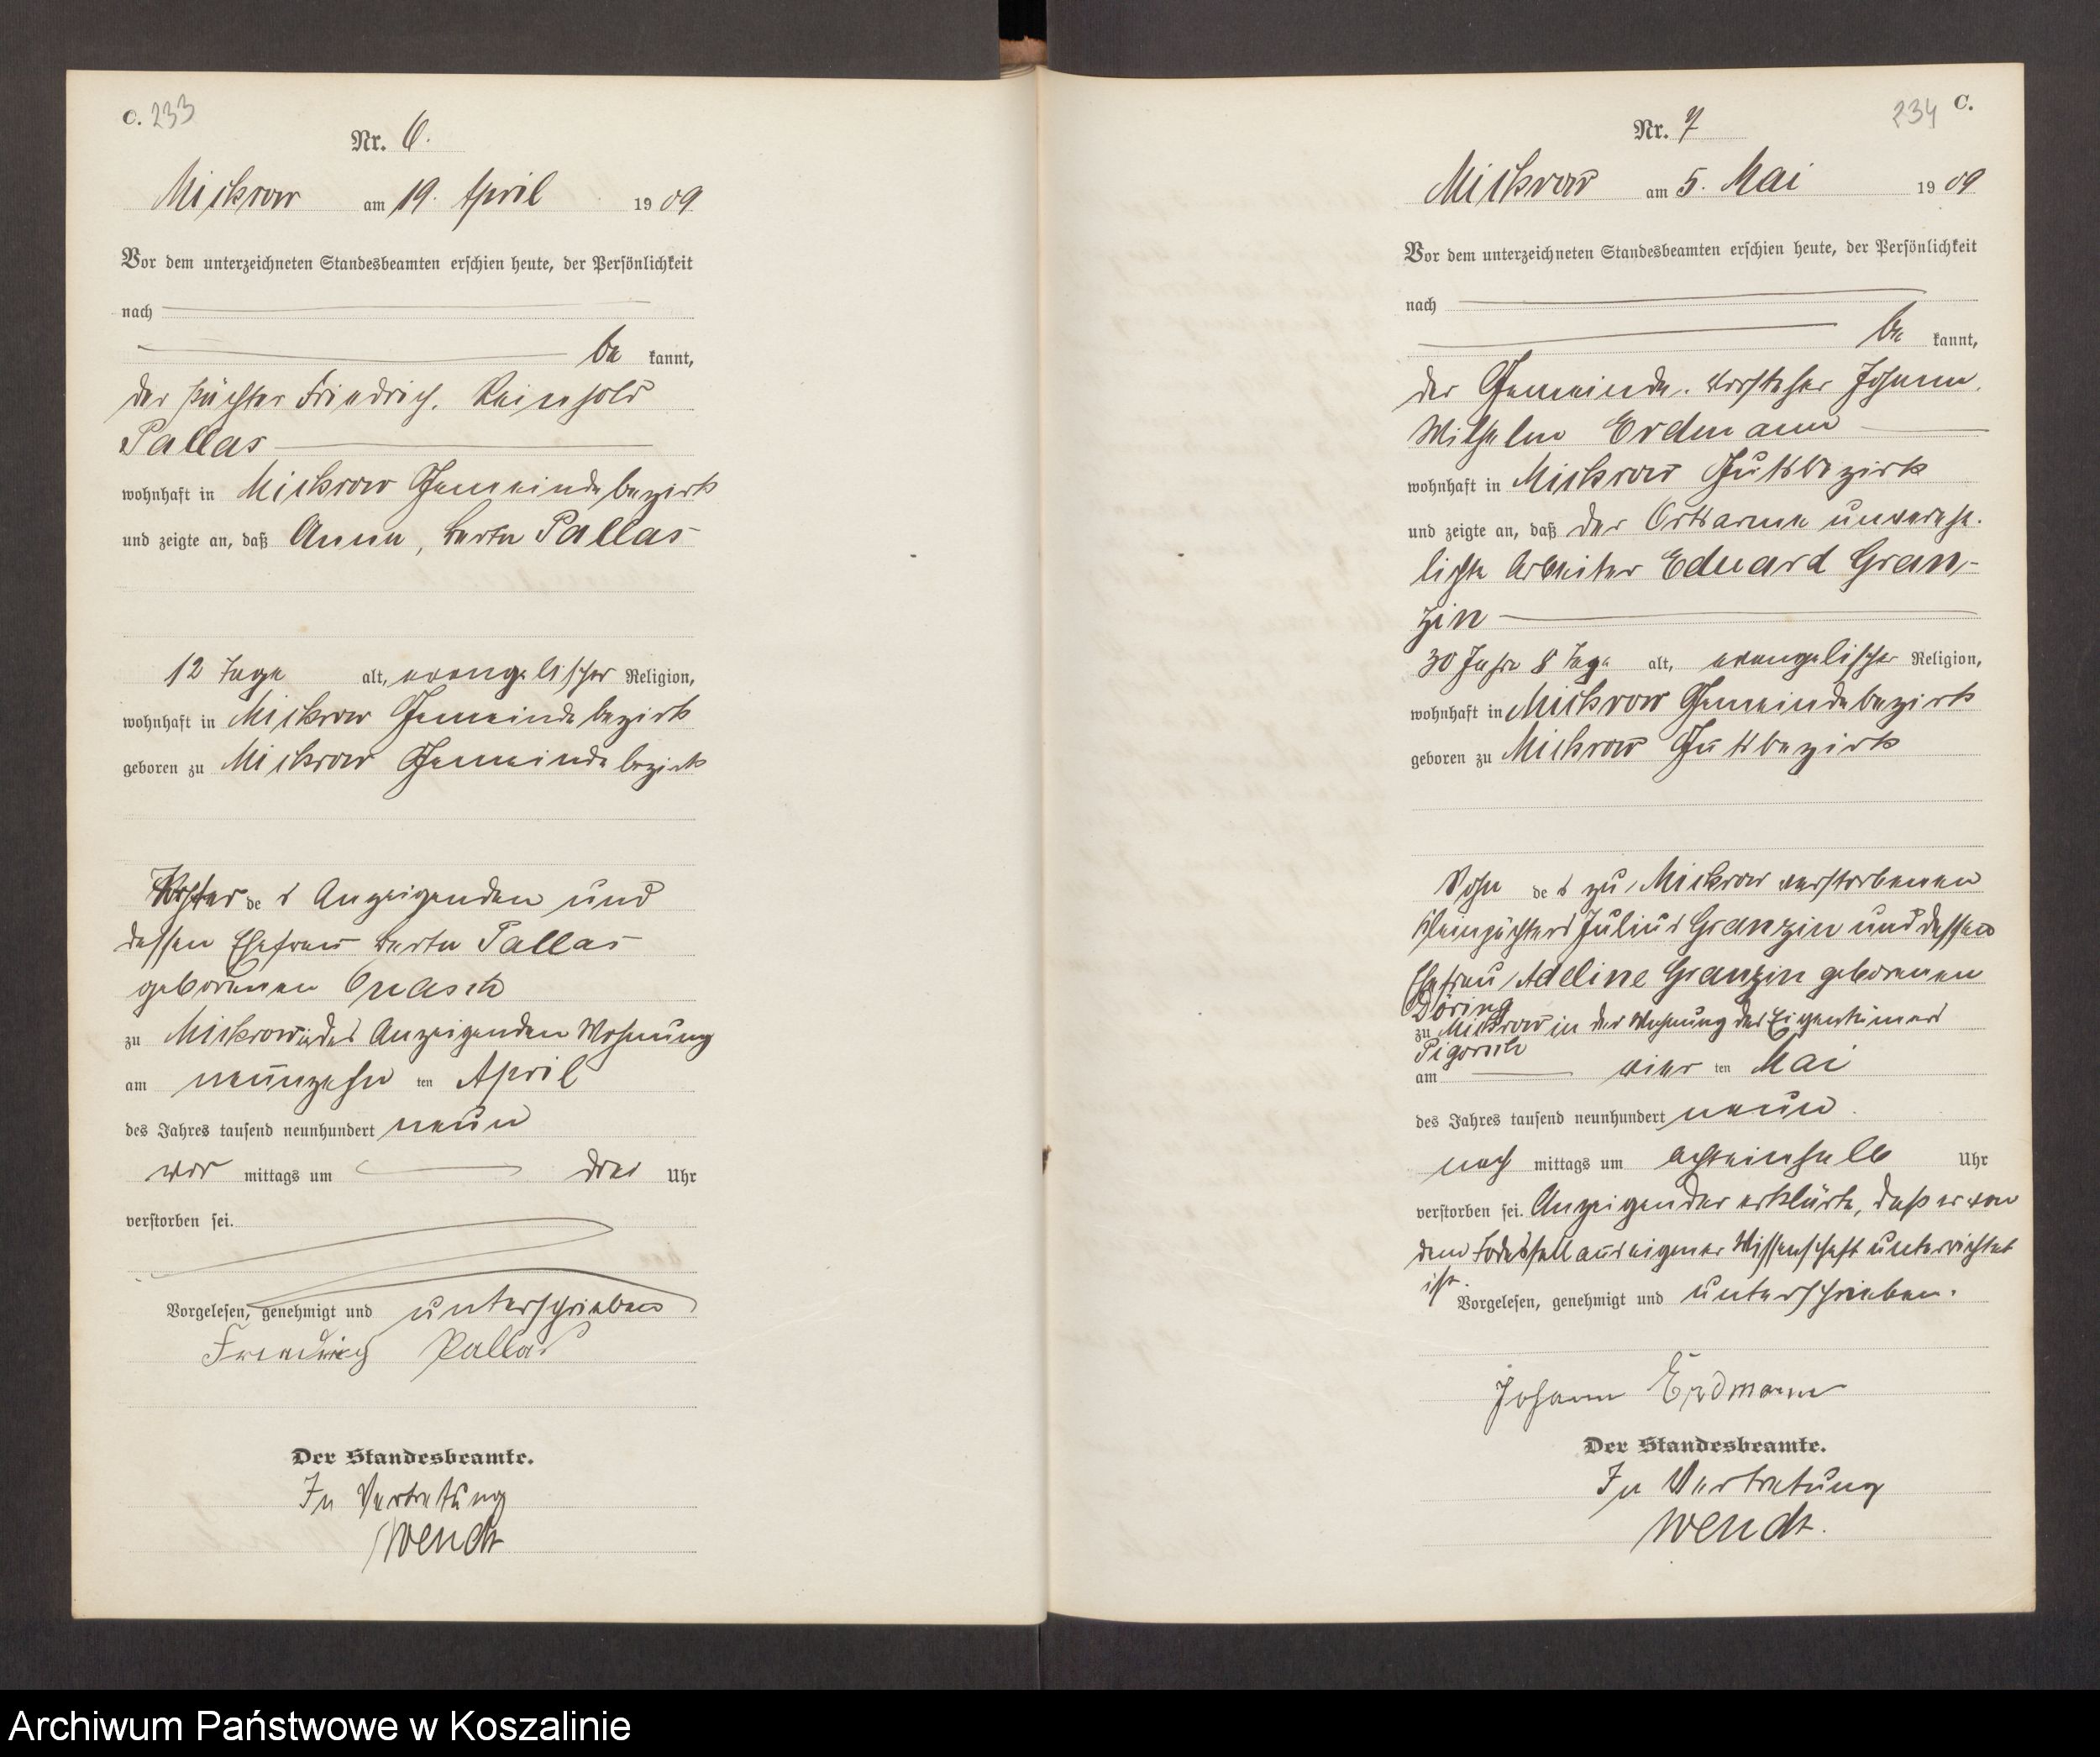 C. 233
Nr. 6.
Mickrow am 19. April 1909
Vor dem unterzeichneten Standesbeamten erschien heute, der Persönlichkeit
nach
be kannt,
der Pächter Friedrich, Reinhold
Pallas
wohnhaft in Mickrow Gemeindebezirk
und zeigte an, daß Anna, Berta Pallas
12 Tage alt, evangelischer Religion,
wohnhaft in Mickrow Gemeindebezirk
geboren zu Mickrow Gemeindebezirk
Tochter de s Anzeigenden und
dessen Ehefrau Berta Pallas
geborenen
zu Mickrow in des Anzeigenden Wohnung
am neunzehn ten April
des Jahres tausend neunhundert neun
vor mittags um drei Uhr
verstorben sei.
Vorgelesen, genehmigt und unterschrieben
Friedrich Pallas
Der Standesbeamte.
In Vertretung
Wendt
234 C.
Nr. 7
Mickrow am 5. Mai 1909
Vor dem unterzeichneten Standesbeamten erschien heute, der Persönlichkeit
nach
be kannt,
der Gemeinde-Vorsteher Johann,
Wilhelm Erdmann
wohnhaft in Mickrow Gutsbezirk
und zeigte an, daß der Ortsarme unverehe-
lichte Arbeiter Eduard Gran-
zin
30 Jahre 8 Tage alt, evangelischer Religion,
wohnhaft in Mickrow Gemeindebezirk
geboren zu Mickrow Gutsbezirk
Sohn de s zu Mickrow verstorbenen
Kleinpächters Julius Granzin und dessen
Ehefrau Adeline Granzin geborenen
Döring
zu Mickrow in der Wohnung des Eigentümers
Pigorsch
am vier ten Mai
des Jahres tausend neunhundert neun
nach mittags um achteinhalb Uhr
verstorben sei. Anzeigender erklärte, daß er von
dem Todesfall aus eigener Wissenschaft unterrichtet
ist.
Vorgelesen, genehmigt und unterschrieben.
Johann Erdmann
Der Standesbeamte.
In Vertretung
Wendt.
Archiwum Państwowe w Koszalinie